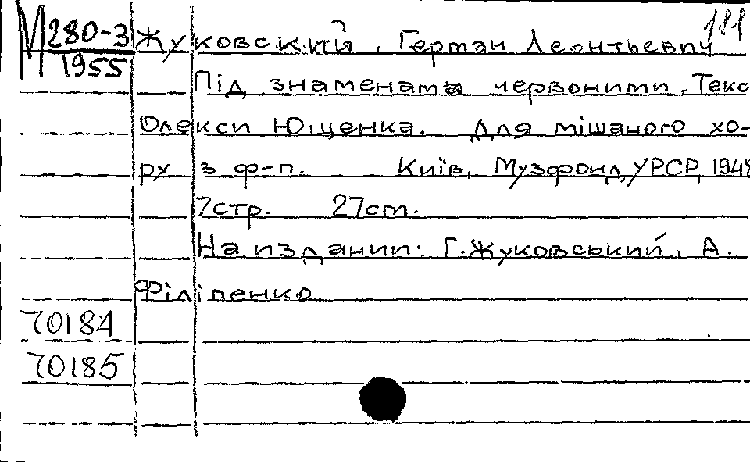 181
М 280-3 Жуковский, Герман Леонтьевич
1955
Під знаменами червоними. Текс
Олекси Ющенка. Для мішаного хо-
ру з ф-п. Київ, Музфонд УРСР, 1948
7стр. 27cm.
На издании: Г. Жуковський, А.
Філіпенко
70184
70185